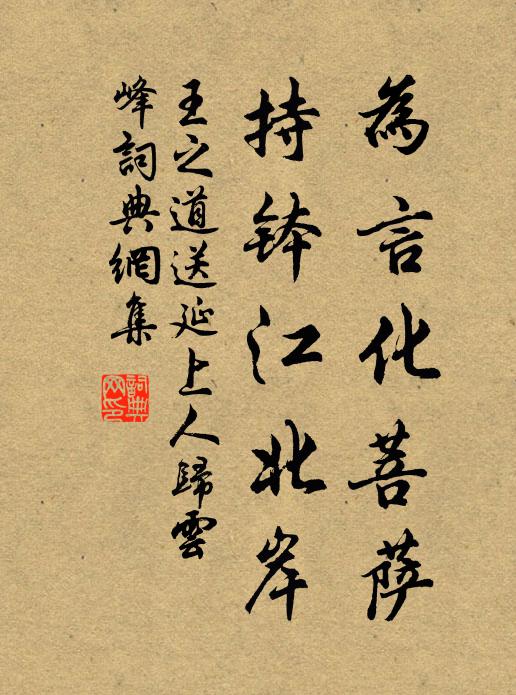 為言化菩薩
持鉢江北岸
王之道送延上人歸雲
峰詞典網集
詞典網印